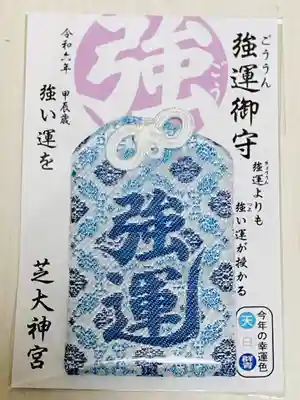 ごううん
強運御守
きょううん
強運よりも
つよ
強い運が授かる
今年の幸運色
天
白
群青
強
ごう
令和六年 甲辰歳
強い運を
芝大神宮
強運